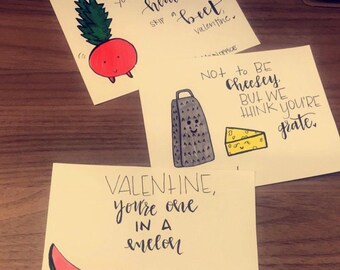 you
heart
skip a beet,
valentine.
NOT TO BE
cheesey,
BUT WE
THINK YOU'RE
grate.
VALENTINE,
you're one
IN A
melon